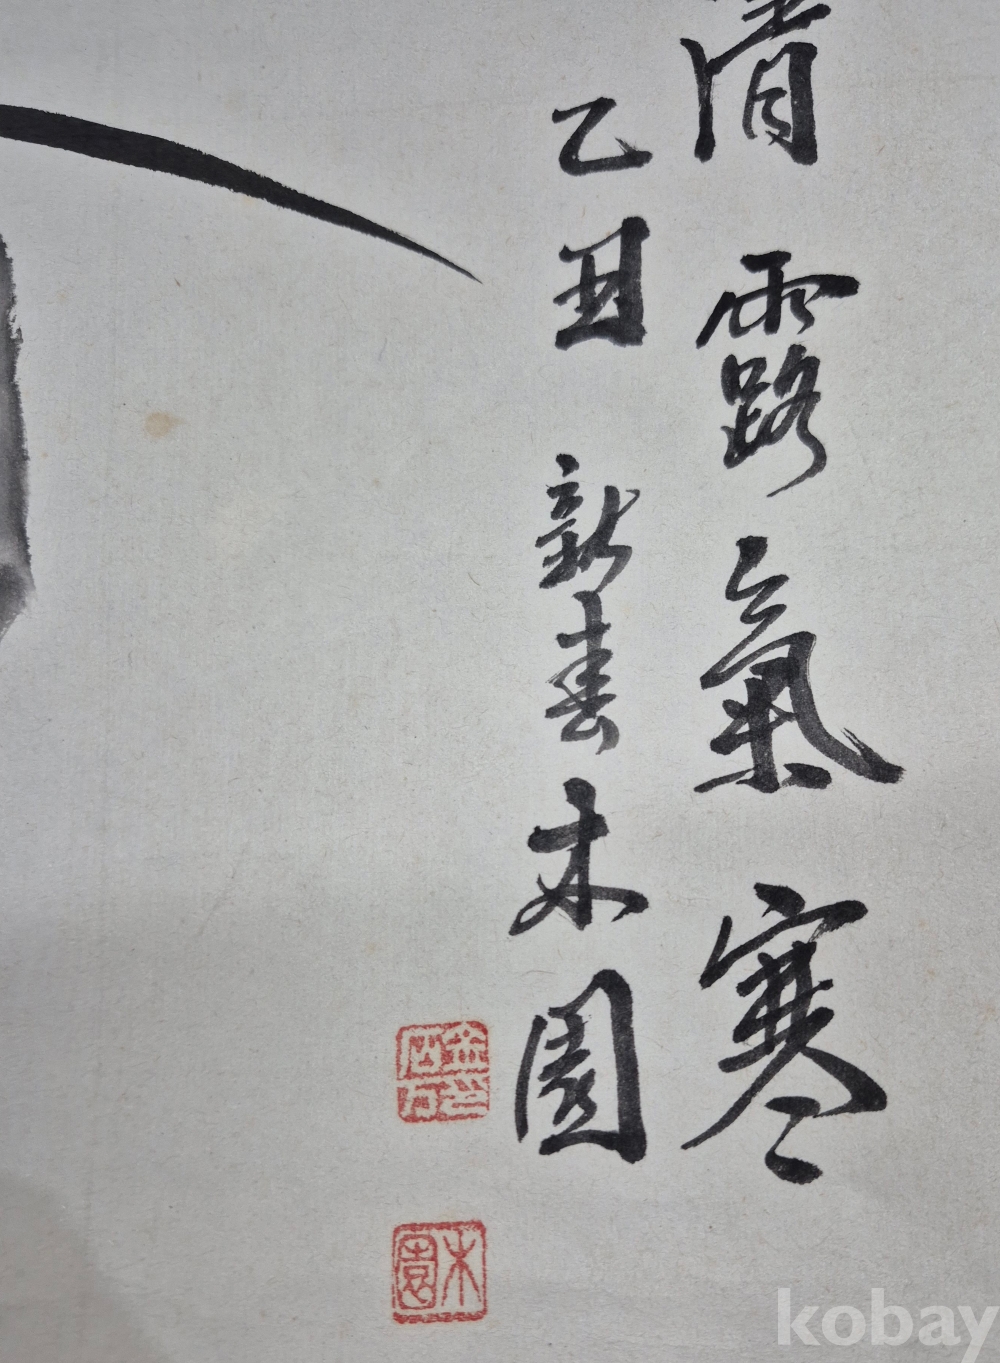 清露氣寒
乙丑 新春 木園
木園
kobay